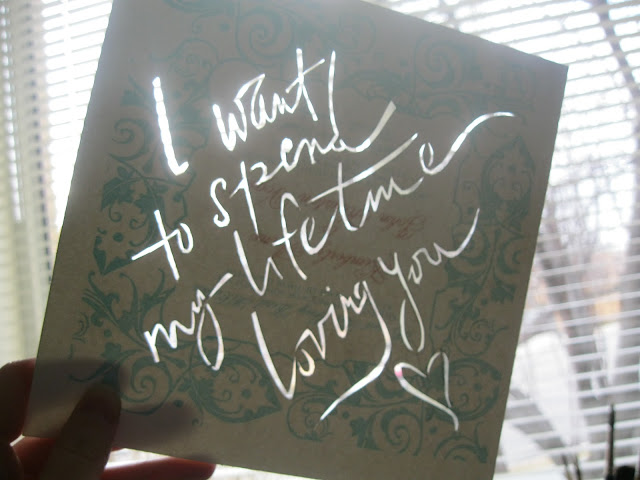 I want
to spend
my lifetime
loving you